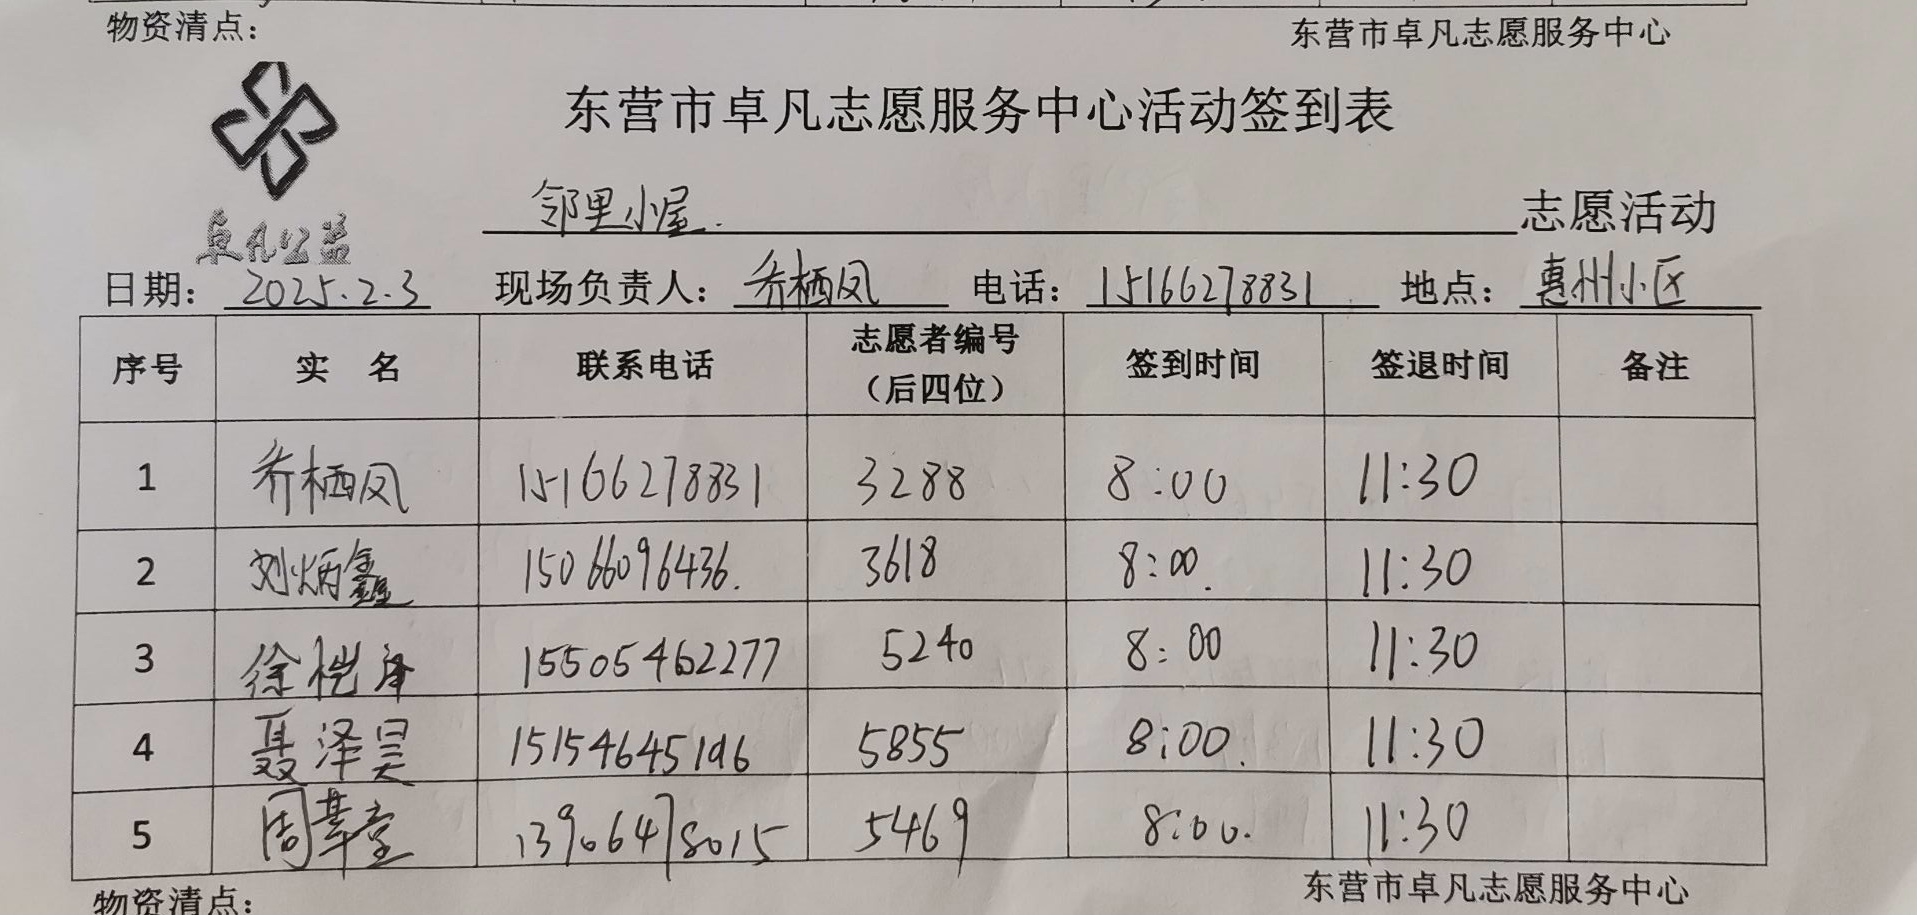 物资清点：
东营市卓凡志愿服务中心
东营市卓凡志愿服务中心活动签到表
卓凡公益
邻里小屋. 志愿活动
日期：2025.2.3 现场负责人：乔栖凤 电话：15166278831 地点：惠州小区
序号 实 名 联系电话 志愿者编号（后四位） 签到时间 签退时间 备注
1 乔栖凤 15166278831 3288 8:00 11:30
2 刘炳鑫 15066096436. 3618 8:00. 11:30
3 徐桄泽 15505462277 5240 8:00 11:30
4 聂泽昊 15154645196 5855 8:00. 11:30
5 周 13906478015 5469 8:00. 11:30
物资清点：
东营市卓凡志愿服务中心